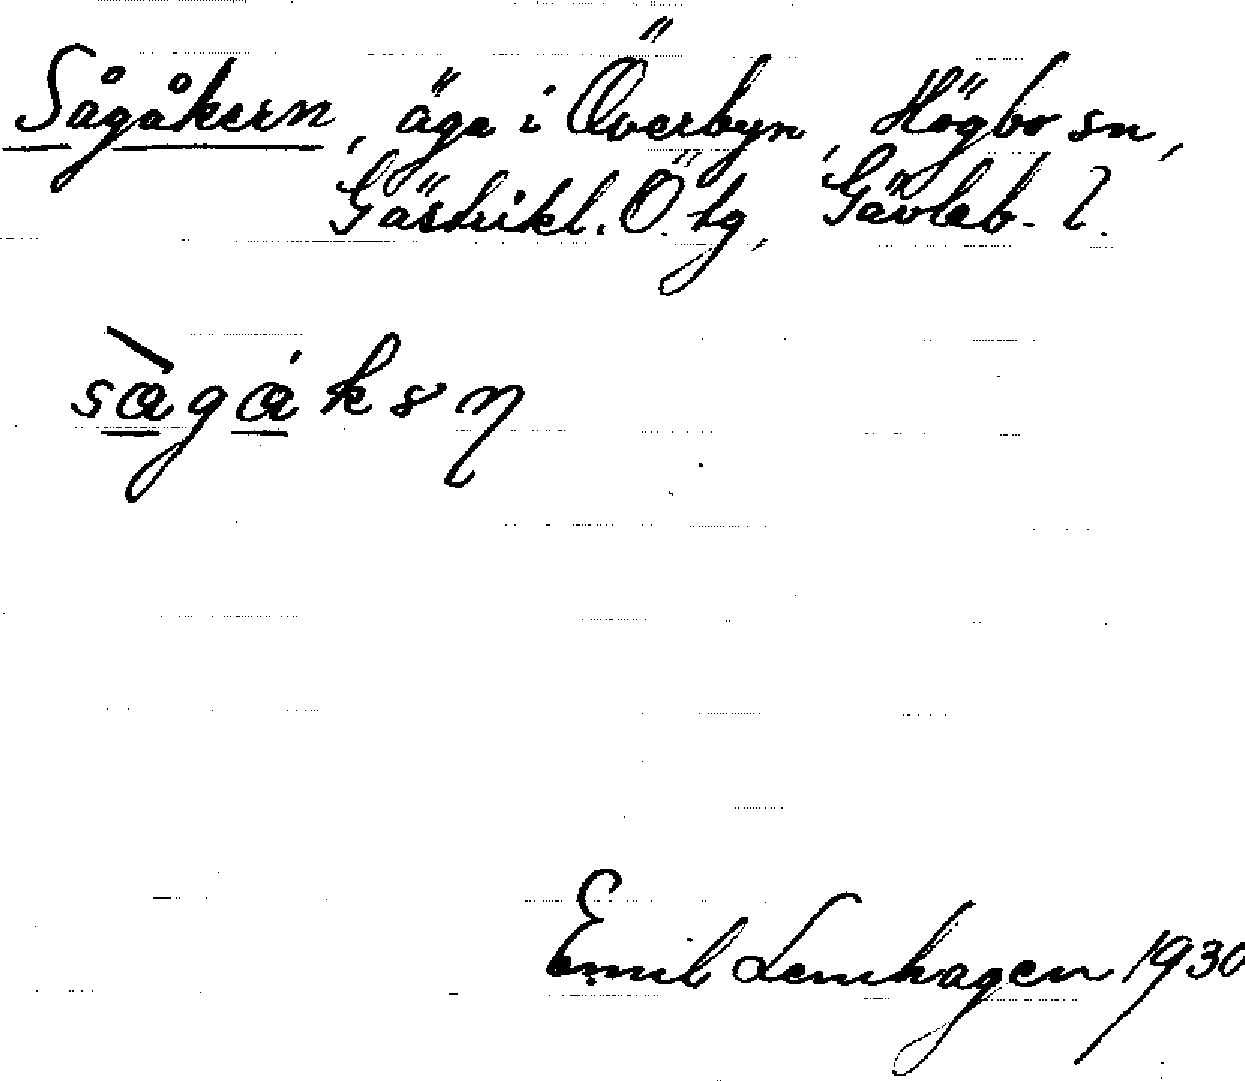 Sågåkern, äga i Överbyn, Högbo sn,
Gästrikl. Ö. tg, Gävleb. l.
Emil Lenhagen 1930